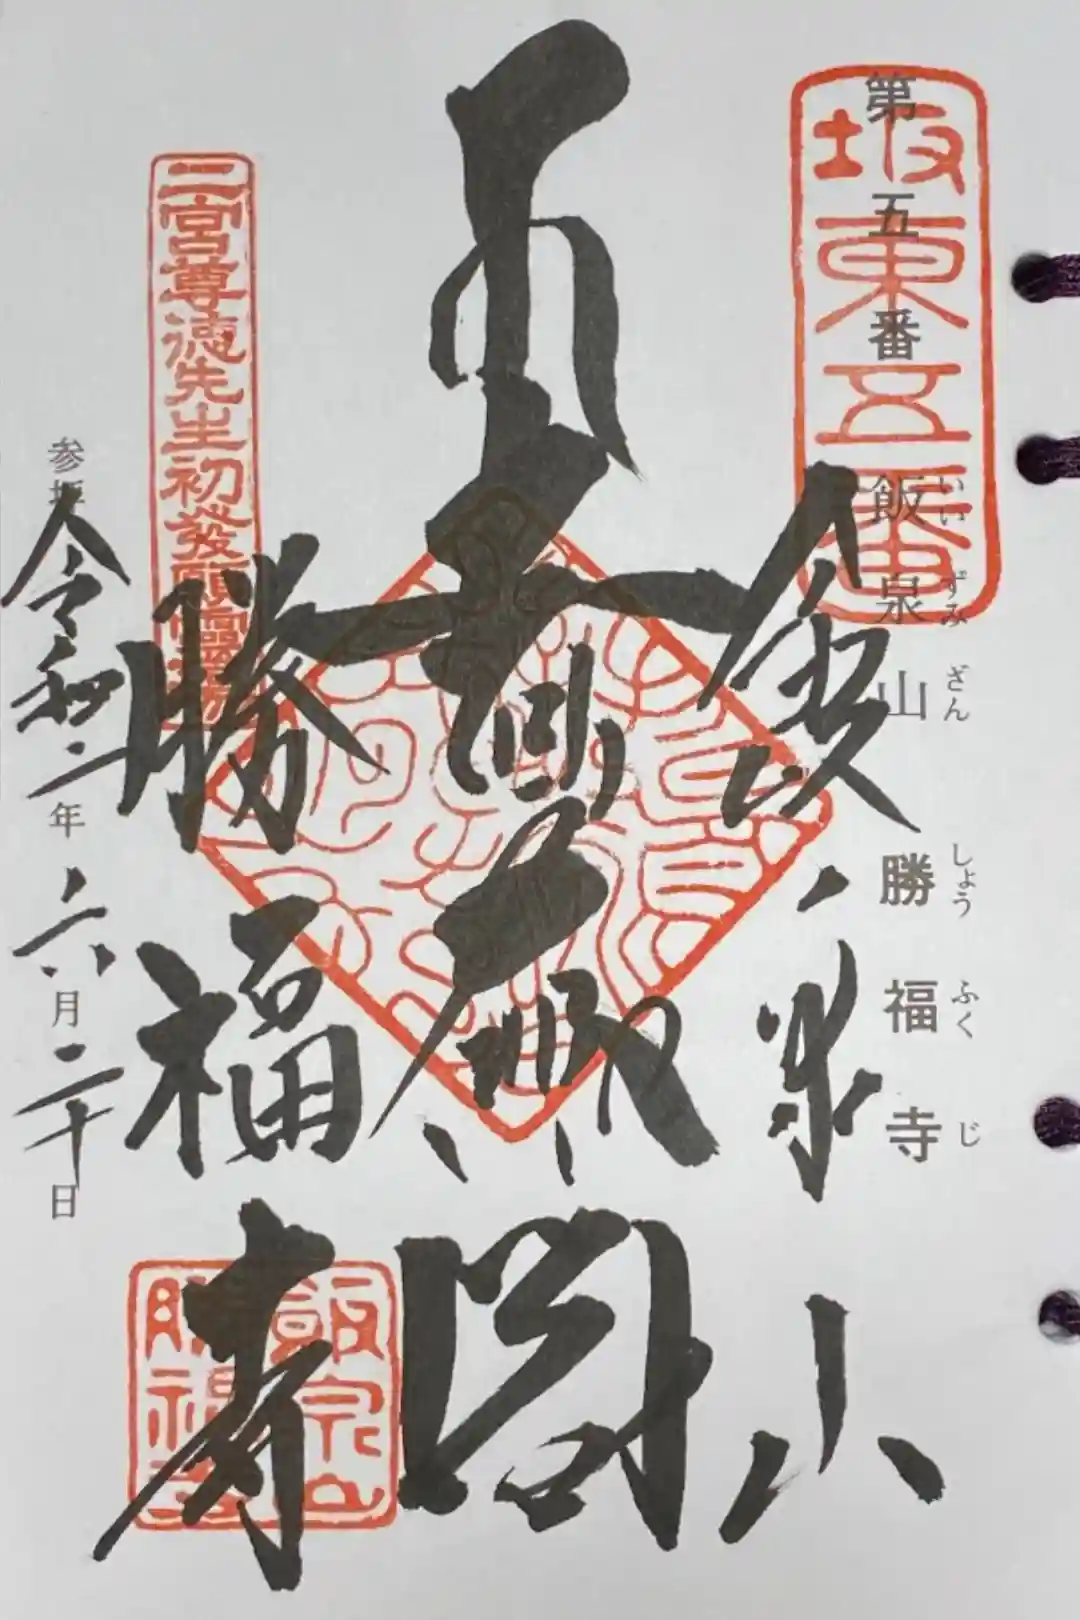 第五番
飯泉山 勝福寺
いいずみざん しょうふくじ
坂東五番
飯泉山
大
閣
勝福寺
二宮尊徳先生初發願
令和二年六月二十日
飯泉山
勝福寺